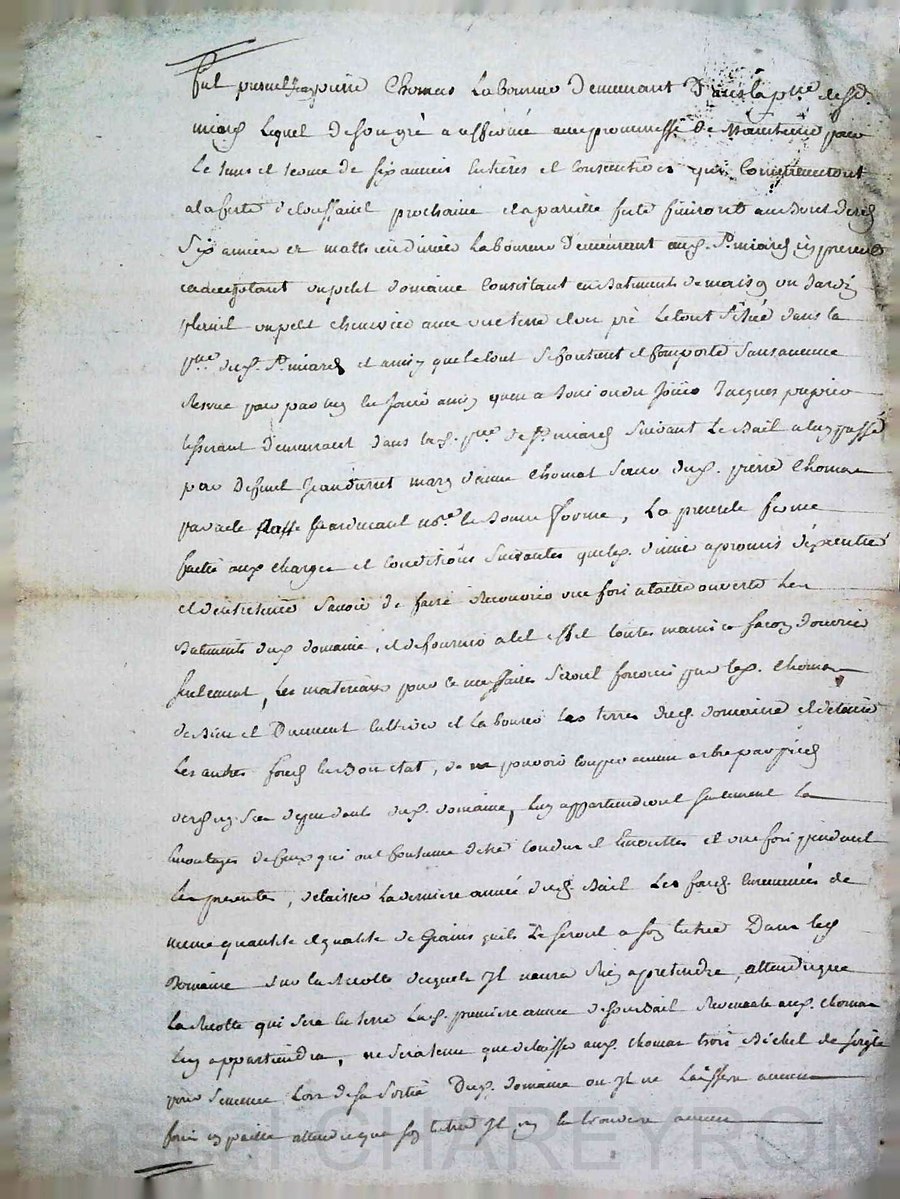 fut present pierre Chomas Laboureur Demeurant Dans la p.sse de s.t
miard Lequel de son gré a affermé avec promesse De Maintenir pour
Le tems et terme de six années entières et consecutives qui Commenceront
a la feste de toussaint prochaine et a pareille feste finiront au Bout desd
Six années et mathieu dimier Laboureur Demeurant aud. St. miard icy present
et acceptant un petit domaine Consistant en Batiments de maison un Jardin
un petit chenevier avec une terre et un pré Le tout Situé dans la
p.sse dud. St. miard et ainsy que le tout Se Contient et Comporte Sans aucune
Reserve pour par luy en Jouir ainsy qu'en a Joui ou du Jouir Jacques
tisserant Demeurant dans lad. p.sse de St miard Suivant Le Bail a luy passé
par Deffunt Jean mary d'anne Chomat Soeur dud. pierre Chomas
par acte no.re La presente ferme
faitte aux charges et Conditions Suivantes que led. dimier a promis d'executer
et d'entretenir Savoir de faire Recouvrir une fois a taille ouverte Les
Batiments dud. domaine, et de fournir a cet effet toutes mains et façon d'ouvrier
Seulement, Les materiaux pour ce necessaires Seront fournis par led. Chomas
de Bien et Duement cultiver et Labourer Les terres dud. domaine et de tenir
Les autres fonds en Bon etat, de ne pouvoir couper aucun arbre par pied
dependants dud. domaine, Luy appartiendront Seulement Les
emontages de Ceux qui ont Coutume d'etre tondus et emontés et une fois pendant
Les presentes, de laisser La derniere année dud. Bail Les fonds ensemencés de
meme quantité et qualité de Grains qu'ils Le seront a son entrée Dans led
Domaine Sur la Recolte desquels Il n'aura Rien a pretendre, attendu que
La Recolte qui Sera en terre Lad. premiere année de son Bail aud. Chomas
Luy appartiendra, ne Sera tenu que de laisser aud. Chomas trois Bichet de Seigle
pour Semence Lors de Sa Sortie Dud. domaine ou Il ne Laissera aucun
foin ny paille attendu qu'a son entrée Il n'y en trouvera aucun
Pascal CHAREYRON